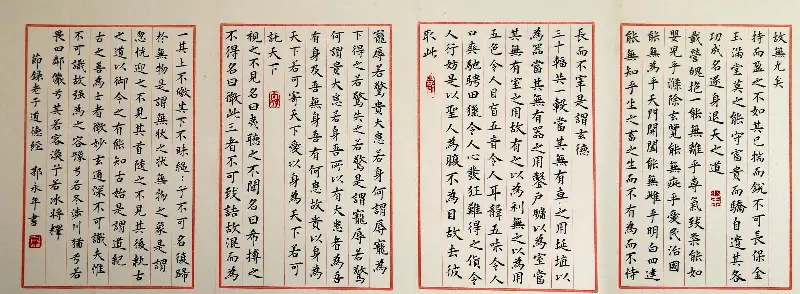 故無尤矣
持而盈之不如其已揣而銳不可長保金
玉滿堂莫之能守富貴而驕自遺其咎
功成名遂身退天之道
載營魄抱一能無離乎專氣致柔能如
嬰兒乎滌除玄覽能無疵乎愛民治國
能無為乎天門開闔能無雌乎明白四達
能無知乎生之畜之生而不有為而不恃
長而不宰是謂玄德
三十輻共一轂當其無有車之用埏埴以
為器當其無有器之用鑿戶牖以為室當
其無有室之用故有之以為利無之以為用
五色令人目盲五音令人耳聾五味令人
口爽馳騁田獵令人心發狂難得之貨令
人行妨是以聖人為腹不為目故去彼
取此
寵辱若驚貴大患若身何謂辱寵為
下得之若驚失之若驚是謂寵辱若驚
何謂貴大患若身吾所以有大患者為吾
有身及吾無身吾有何患故貴以身為
天下若可寄天下愛以身為天下若可
託天下
視之不見名曰夷聽之不聞名曰希搏之
不得名曰微此三者不可致詰故混而為
一其上不皦其下不昧繩〻兮不可名復歸
於無物是謂無狀之狀無物之象是謂
忽恍迎之不見其首隨之不見其後執古
之道以御今之有能知古始是謂道紀
古之善為士者微妙玄通深不可識夫惟
不可識故強為之容豫兮若冬涉川猶兮若
畏四鄰儼兮其若客渙兮若冰將釋
節錄老子道德經 郝永年書